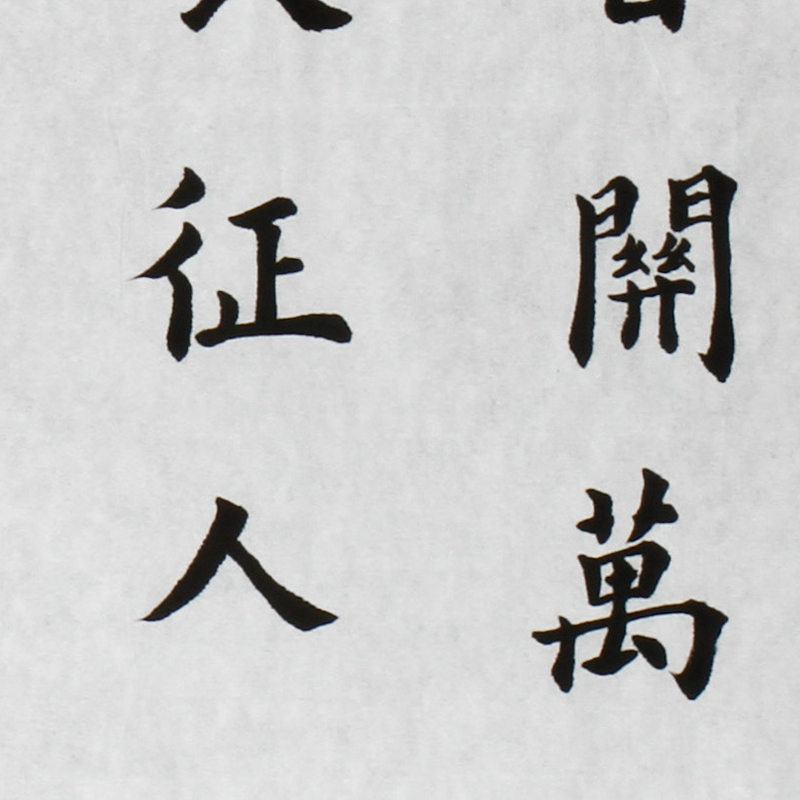 關萬
征人